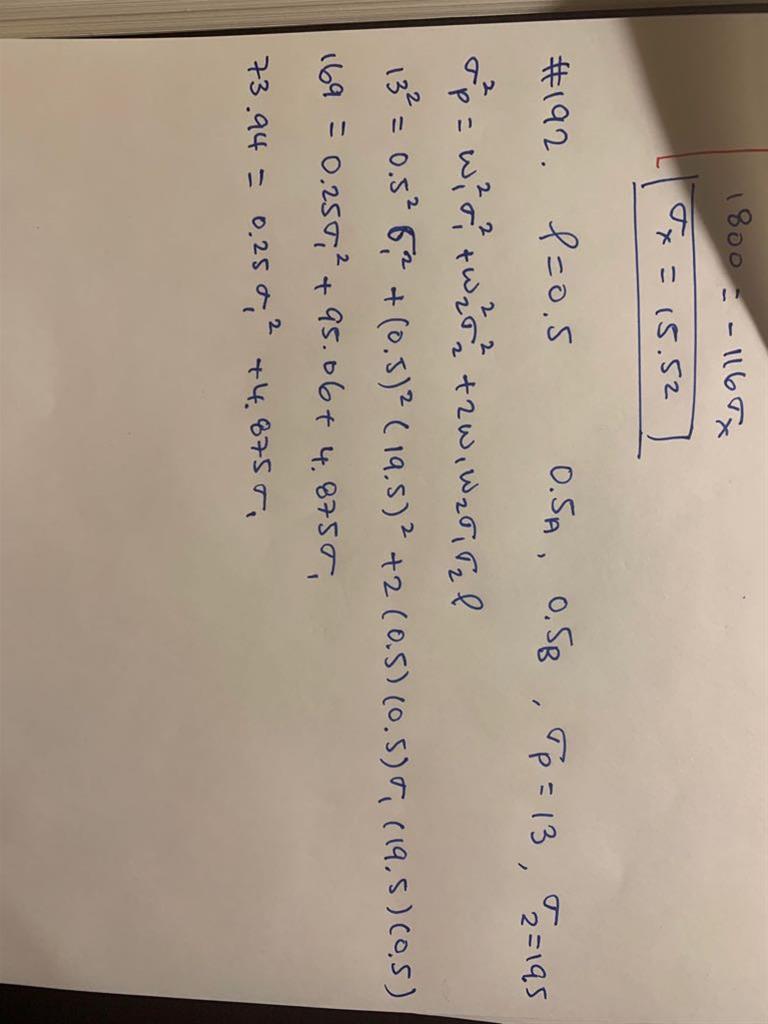 1800 = -116σx
σx = 15.52
#192. ρ=0.5 0.5A, 0.5B, σp = 13, σ2=19.5
σp² = w₁²σ₁² + w₂²σ₂² + 2w₁w₂σ₁σ₂ρ
13² = 0.5² σ₁² + (0.5)² (19.5)² + 2(0.5)(0.5)σ₁(19.5)(0.5)
169 = 0.25σ₁² + 95.06 + 4.875σ₁
73.94 = 0.25σ₁² + 4.875σ₁